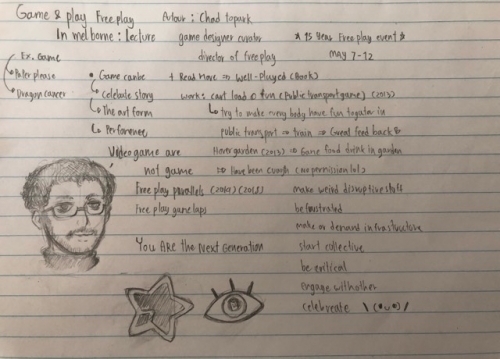 Game & play Free play
Autour : Chad toprak
In melborne : lecture
game designer curator
* 15 years Free play event *
director of freeplay
May 7-12
Ex. Game
Paler please
Dragon cancer
• Game can be
Celebrate story
The art form
Performence
+ Read More ⇒ Well-Played (Book)
works: cart load o fun (Public transport game) (2013)
↳ try to make every body have fun togater in
public transport ⇒ train ⇒ Great feed back
Video game are
not game
Hover garden (2013) ⇒ Game food drink in garden
⇒ Have been cough (no permission lol)
Free play parallels (2014) (2015)
make weird disruptive stuff
Free play game laps
be frustrated
make or demand infrastructure
You Are the Next Generation
start collective
be critical
engage with other
celebreate \(•u•)/